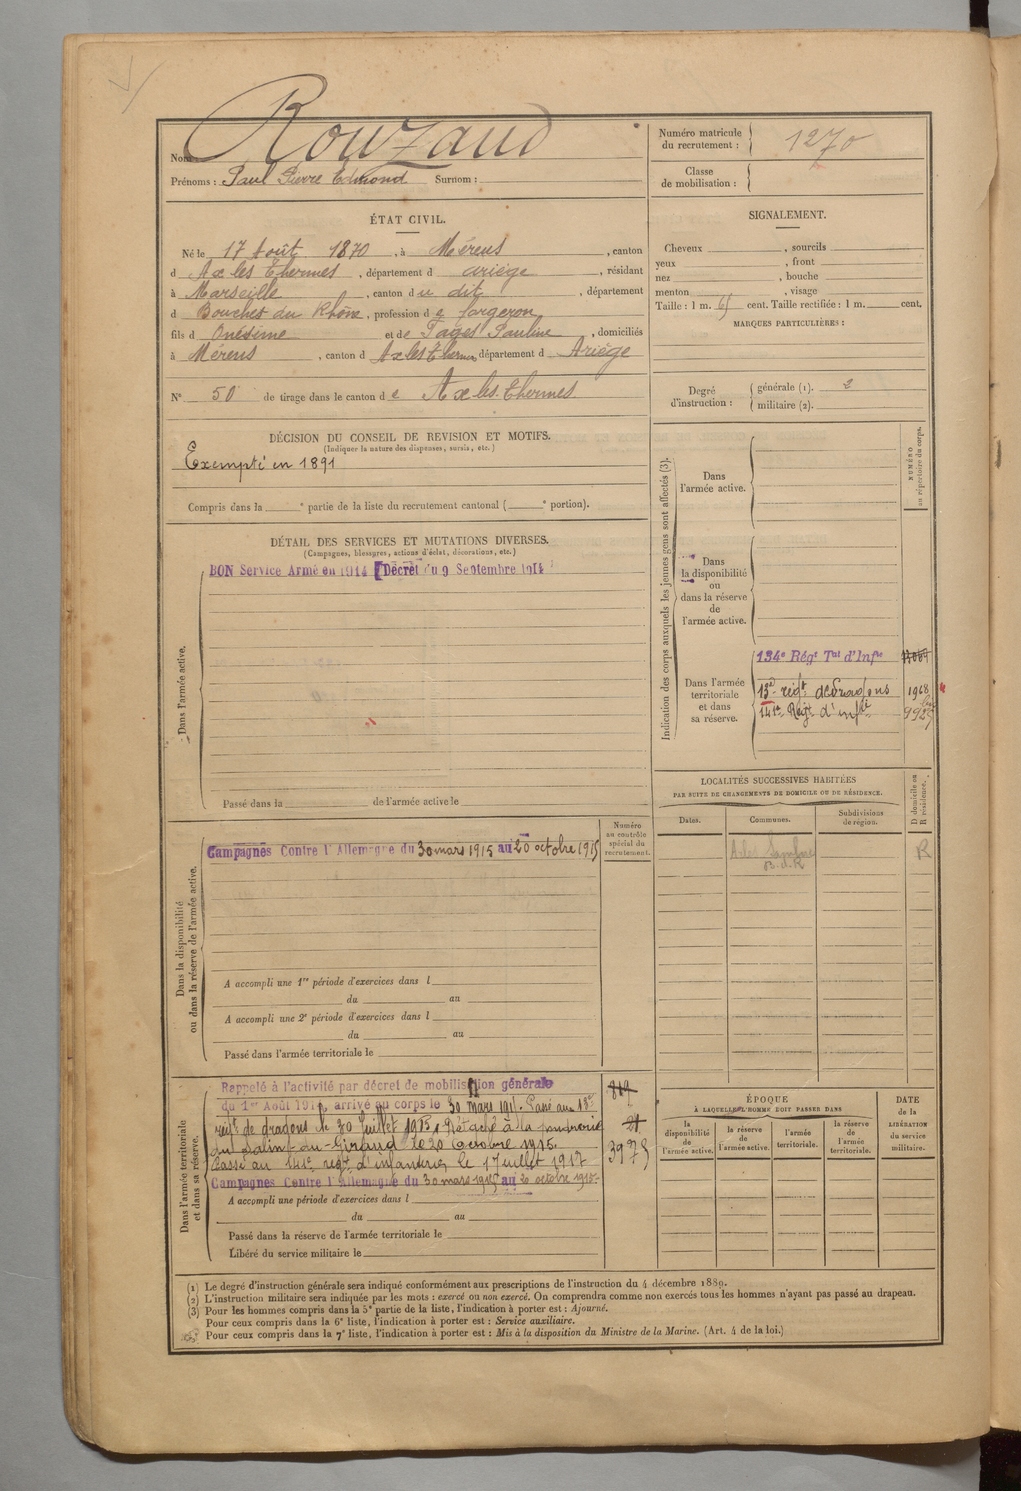 Nom Rouzaud
Prénoms : Paul Pierre Edmond Surnom :
Numéro matricule du recrutement : 1270
Classe de mobilisation :
ÉTAT CIVIL.
Né le 17 Août 1870, à Mérens, canton
d Ax les Thermes, département d ariège, résidant
à Marseille, canton du dit, département
d Bouches du Rhône, profession de forgeron
fils d Onésime et de Pagès Pauline, domiciliés
à Mérens, canton d Ax les Thermes département d Ariège
N° 50 de tirage dans le canton de Ax les Thermes
SIGNALEMENT.
Cheveux , sourcils
yeux , front
nez , bouche
menton , visage
Taille : 1 m. 65 cent. Taille rectifiée : 1 m. cent.
MARQUES PARTICULIÈRES :
Degré d'instruction : générale (1). 2
militaire (2).
DÉCISION DU CONSEIL DE REVISION ET MOTIFS.
(Indiquer la nature des dispenses, sursis, etc.)
Exempté en 1891
Compris dans la e partie de la liste du recrutement cantonal ( e portion).
DÉTAIL DES SERVICES ET MUTATIONS DIVERSES.
(Campagnes, blessures, actions d'éclat, décorations, etc.)
Dans l'armée active.
BON Service Armé en 1914 Décret du 9 Septembre 1914
Passé dans la de l'armée active le
Indication des corps auxquels les jeunes gens sont affectés (3).
NUMÉRO au répertoire du corps.
Dans l'armée active.
Dans la disponibilité ou dans la réserve de l'armée active.
Dans l'armée territoriale et dans sa réserve.
134e Régt Tal d'Infie
13e régt de Dragons 1968
141e Régt d'infie
LOCALITÉS SUCCESSIVES HABITÉES
PAR SUITE DE CHANGEMENTS DE DOMICILE OU DE RÉSIDENCE.
D domicile ou R résidence.
Dates. Communes. Subdivisions de région.
B.d.R R
Numéro au contrôle spécial du recrutement.
Dans la disponibilité ou dans la réserve de l'armée active.
Campagnes Contre l'Allemagne du 30 mars 1915 au 20 octobre 1915
A accompli une 1re période d'exercices dans l
du au
A accompli une 2e période d'exercices dans l
du au
Passé dans l'armée territoriale le
Dans l'armée territoriale et dans sa réserve.
Rappelé à l'activité par décret de mobilisation générale 819
du 1er Août 1914, arrivé au corps le 30 mars 1915. Passé au 13e
régt de dragons le 30 Juillet 1915. Détaché à la poudrerie 21
du Salin-du-Giraud le 20 Octobre 1915.
Passé au 141e régt d'infanterie le 1 Juillet 1917 3975
Campagnes Contre l'Allemagne du 30 mars 1915 au 20 octobre 1915
A accompli une période d'exercices dans l
du au
Passé dans la réserve de l'armée territoriale le
Libéré du service militaire le
ÉPOQUE
À LAQUELLE L'HOMME DOIT PASSER DANS
la disponibilité de l'armée active.
la réserve de l'armée active.
l'armée territoriale.
la réserve de l'armée territoriale.
DATE de la LIBÉRATION du service militaire.
(1) Le degré d'instruction générale sera indiqué conformément aux prescriptions de l'instruction du 4 décembre 1889.
(2) L'instruction militaire sera indiquée par les mots : exercé ou non exercé. On comprendra comme non exercés tous les hommes n'ayant pas passé au drapeau.
(3) Pour les hommes compris dans la 5e partie de la liste, l'indication à porter est : Ajourné.
Pour ceux compris dans la 6e liste, l'indication à porter est : Service auxiliaire.
Pour ceux compris dans la 7e liste, l'indication à porter est : Mis à la disposition du Ministre de la Marine. (Art. 4 de la loi.)